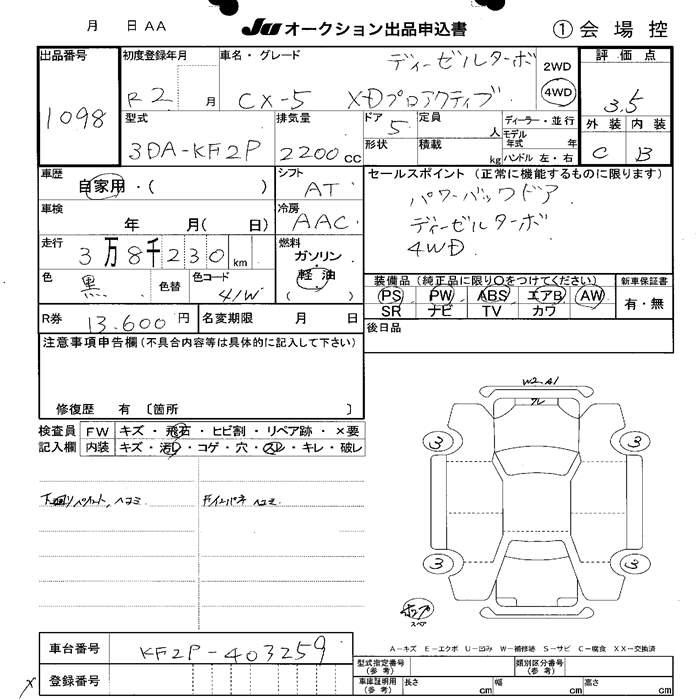 月 日 AA JU オークション出品申込書 ① 会場控
出品番号 1098
初度登録年月 R2 月
車名・グレード ディーゼルターボ
CX-5 XDプロアクティブ
2WD
4WD
評価点 3.5
外装 内装
C B
型式 3DA-KF2P
排気量 2200 CC
ドア 5
形状
定員 人
積載 kg
ディーラー・並行
モデル年式 年
ハンドル 左・右
車歴 自家用・( )
シフト AT
車検 年 月( 日)
冷房 AAC
走行 3万8千230 km
燃料 ガソリン・軽油
( )
色 黒
色替
色コード 41W
R券 13,600 円
名変期限 月 日
セールスポイント (正常に機能するものに限ります)
パワーバックドア
ディーゼルターボ
4WD
装備品 (純正品に限り○をつけてください)
PS PW ABS エアB AW
SR ナビ TV カワ
新車保証書
有・無
後日品
注意事項申告欄 (不具合内容等は具体的に記入して下さい)
修復歴 有 〔箇所 〕
検査員記入欄
FW キズ・飛石・ヒビ割・リペア跡・×要
内装 キズ・汚レ・コゲ・穴・スレ・キレ・破レ
W2.A1
3 3
3 3
スペア
A－キズ E－エクボ U－凹み W－補修跡 S－サビ C－腐食 XX－交換済
車台番号 KF2P-403259
登録番号
型式指定番号 (参考)
類別区分番号 (参考)
車庫証明用 (参考) 長さ cm 幅 cm 高さ cm